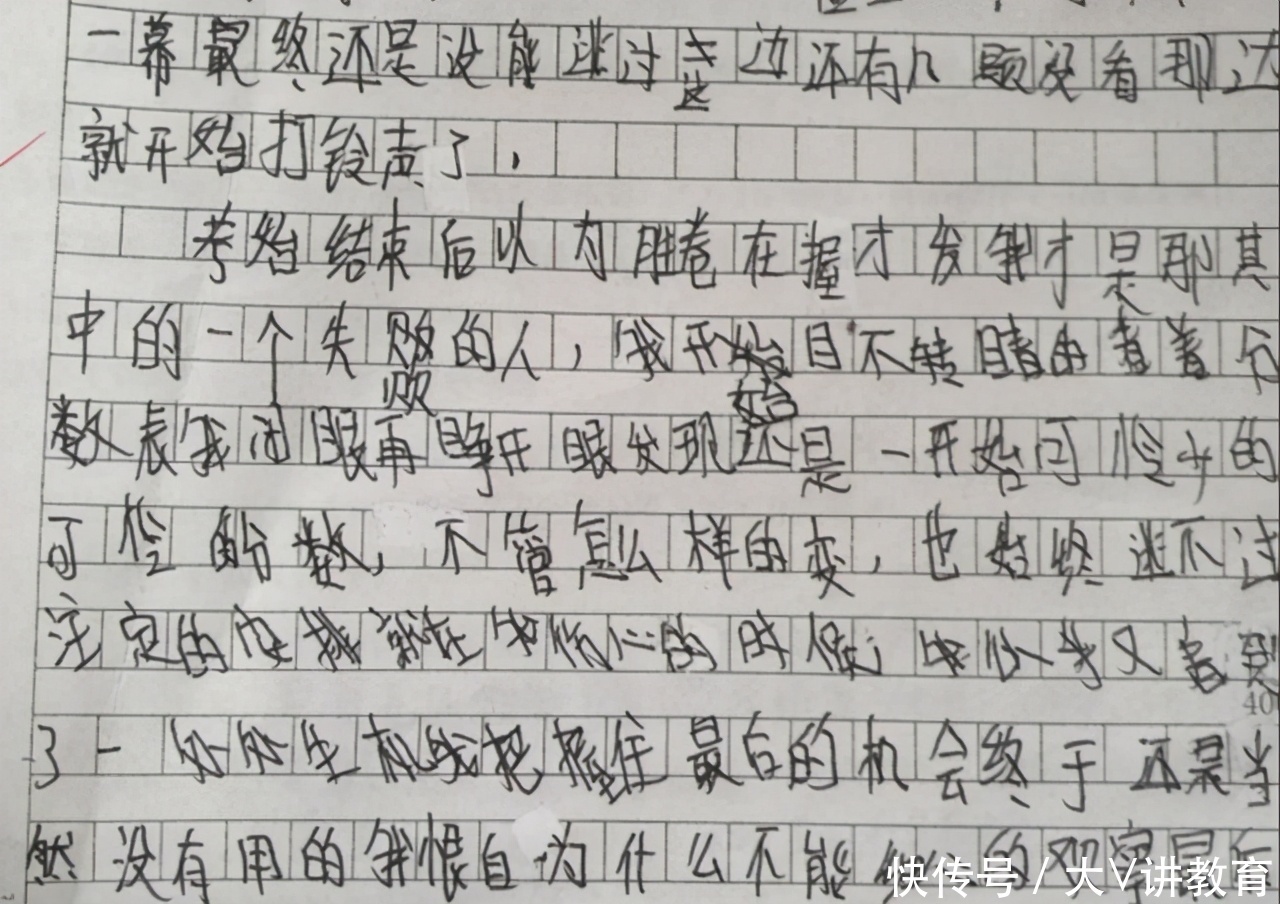 一幕最终还是没能逃过这边还有几题没看那边
就开始打铃声了,
考始结束后以为胜卷在握才发我才是那其
中的一个失败的人,我开始目不转睛的看着分
败 始
数表我闭眼再睁开眼发现还是一开始可怜少的
可怜的分数,不管怎么样的变,也始终逃不过
注定的安排就在我伤心的时候 我 又看到
40
了一 生机我把握住最后的机会终于还是当
然没有用的我恨自为什么不能 的观 最后
快传号 / 大V讲教育